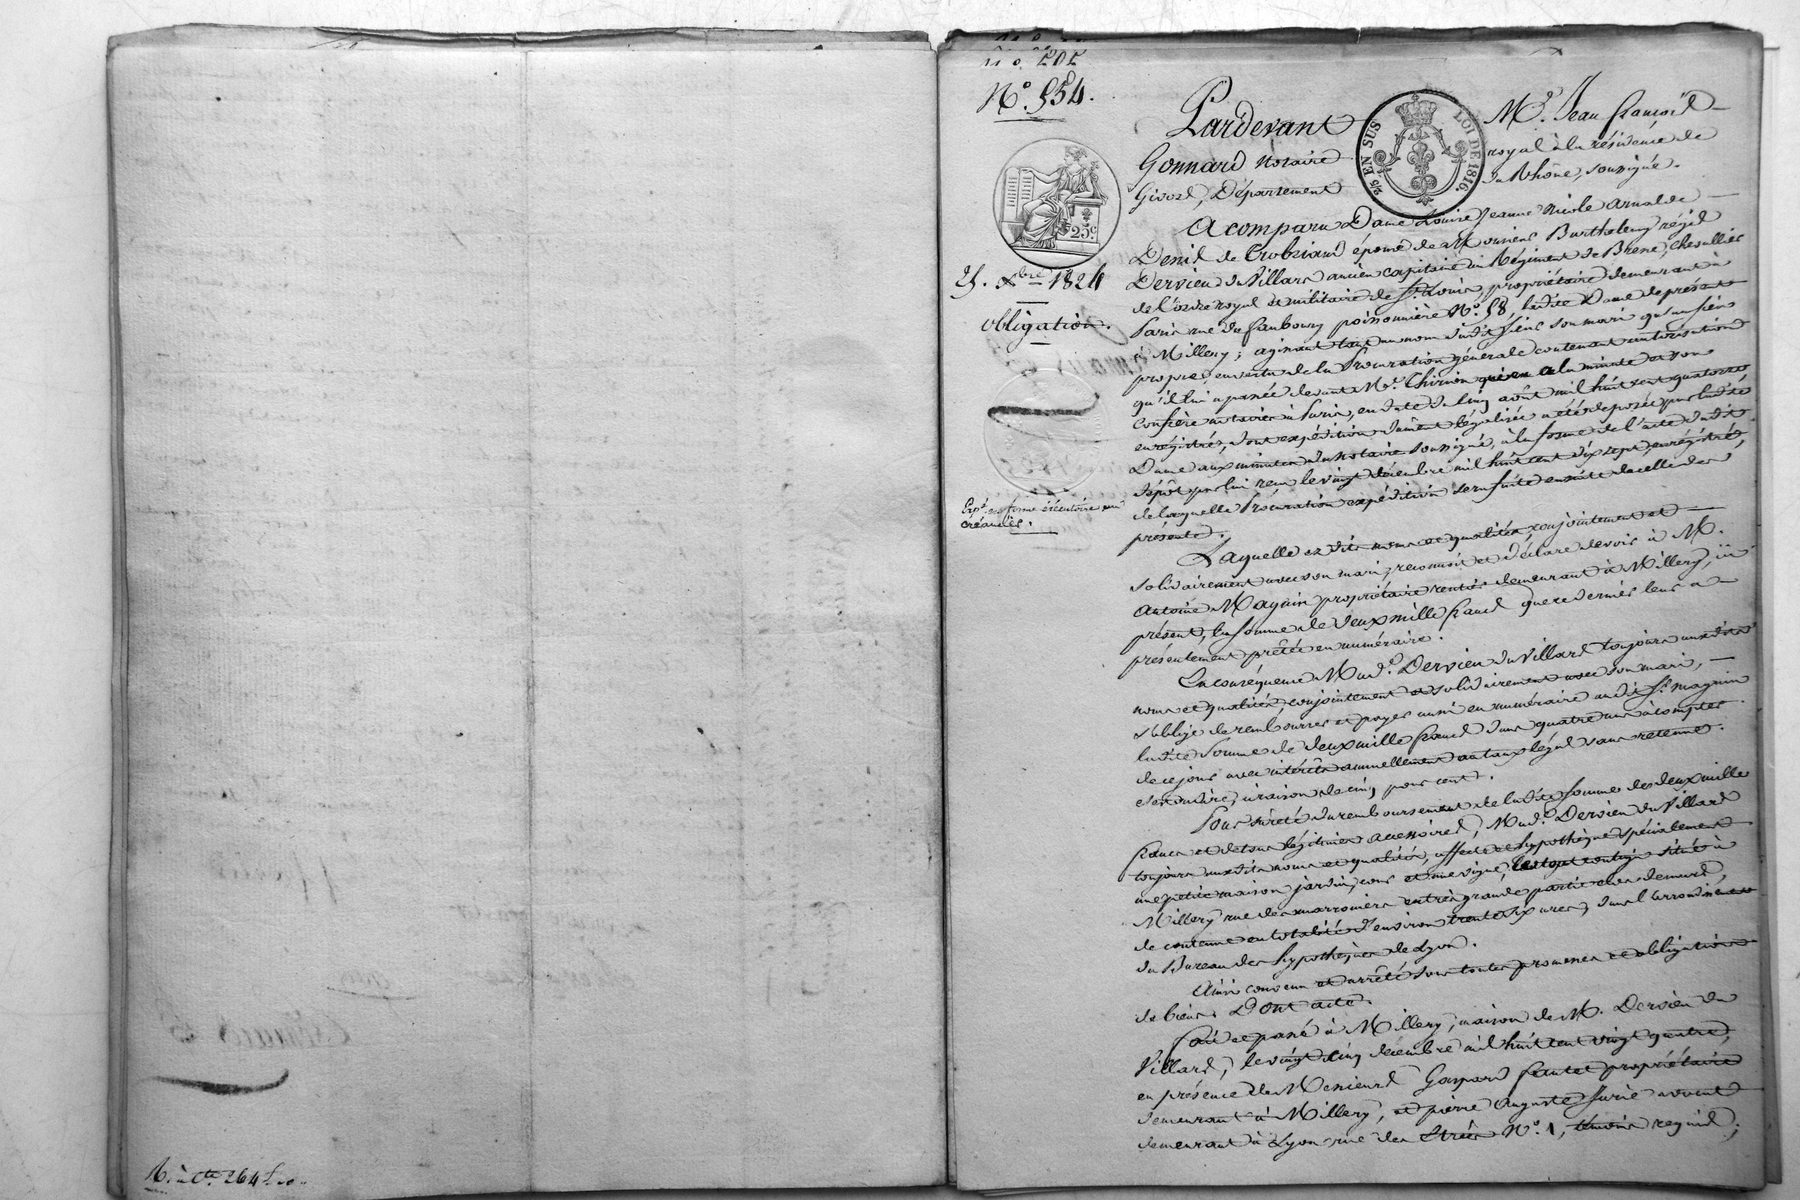 N.° 554.
25. Xbre 1824
obligation.
Expé. en forme éxécutoire au
créancier.
25c.
2/5 EN SUS
LOI DE 1816.
Pardevant Me. Jean françois
Gonnard Notaire royal à la résidence de
Givors, Département du Rhône, soussigné.
A comparu Dame Louise Jeanne Nicole arnalde
Denis de Trobriand épouse de Monsieur Barthelemy régis
Dervieu du Villars ancien capitaine au Régiment de Bresse, chevallier
de l'ordre royal et militaire de St. Louis, propriétaire demeurant à
Paris rue du faubourg poissonnière N°. 58, ladite Dame de présent
à Millery; agissant tant au nom dudit sieur son mari qu'au sien
propre, en vertu de la Procuration générale contenant autorisation
qu'il lui a passée devant Me. Chirion qui en a la minute et son
confrère notaires à Paris, en date du cinq août mil huit cent quatorze
enrégistrée, dont expédition dûment légalisée a été déposée par ladite
Dame aux minutes du notaire soussigné, à la forme de l'acte dudit
dépôt par lui reçu le vingt décembre mil huit cent dix sept, enrégistré,
de laquelle Procuration expédition sera faite ensuite de celle des
présentes.
Laquelle ez dits noms et qualités, conjointement et
solidairement avec son mari, reconnoit et déclare devoir à M.
Antoine Magnin propriétaire rentier demeurant à Millery, ici
présent, la somme de deux mille francs que ce dernier leur a
présentement prêtée en numéraire.
En conséquence Made. Dervieu du Villars toujours auxdits
noms et qualités, conjointement et solidairement avec son mari,
s'oblige de rembourser et payer aussi en numéraire audit Sr. magnin
ladite somme de deux mille francs dans quatre ans à compter
de ce jour avec intérêts annuellement au taux légal sans retenue
c'est à dire, à raison de cinq pour cent.
Pour sûreté du remboursement de ladite somme de deux mille
francs et de tous légitimes accessoires, Made. Dervieu du Villars
toujours auxdits noms et qualités, affecte et hypothèque spécialement
une petite maison, jardin, cour et une vigne, le tout contigu situé à
Millery rue des marroniers en très grande partie clos de murs,
de contenue en totalité d'environ trente six ares, dans l'arrondissement
du Bureau des hypothèques de Lyon.
Ainsi convenu et arrêté sous toutes promesses et obligations
de biens. Dont acte.
Fait et passé à Millery, maison de M. Dervieu du
Villars, le vingt cinq décembre mil huit cent vingt quatre,
en présence de Messieurs Gaspard propriétaire
demeurant à Millery, et pierre Auguste avocat
demeurant à Lyon rue des N°. 1, témoins requis;